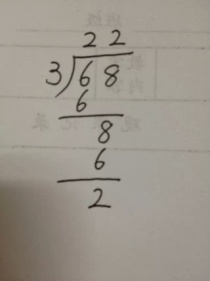 22
3)68
6
8
6
2